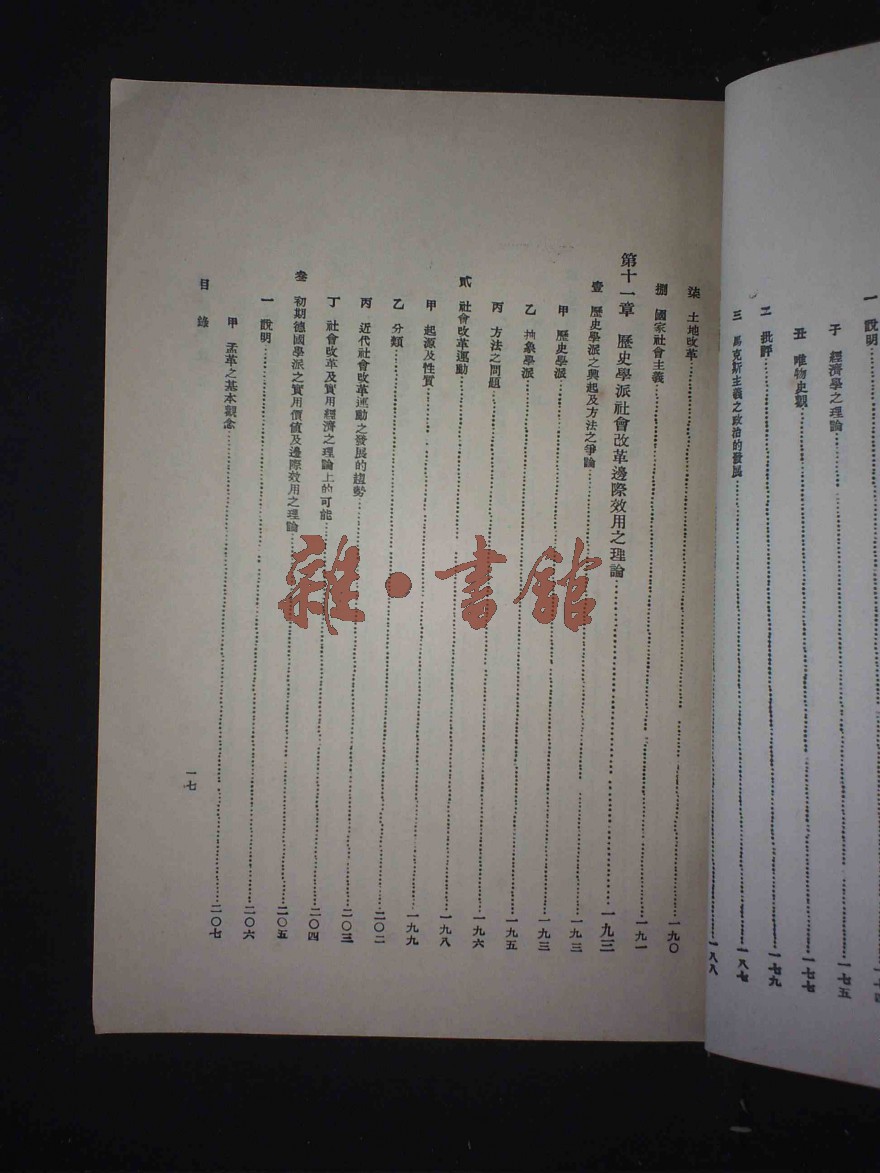 一 說明
子 經濟學之理論 一七五
丑 唯物史觀 一七七
二 批評 一七九
三 馬克斯主義之政治的發展 一八七
一八八
柒 土地改革 一九〇
捌 國家社會主義 一九一
第十一章 歷史學派社會改革邊際效用之理論 一九三
壹 歷史學派之興起及方法之爭論 一九三
甲 歷史學派 一九三
乙 抽象學派 一九五
丙 方法之問題 一九六
貳 社會改革運動 一九八
甲 起源及性質 一九九
乙 分類 二〇二
丙 近代社會改革運動之發展的趨勢 二〇三
丁 社會改革及實用經濟之理論上的可能 二〇四
叁 初期德國學派之實用價值及邊際效用之理論 二〇五
一 說明 二〇六
甲 孟革之基本觀念 二〇七
目錄
一七
雜·書館